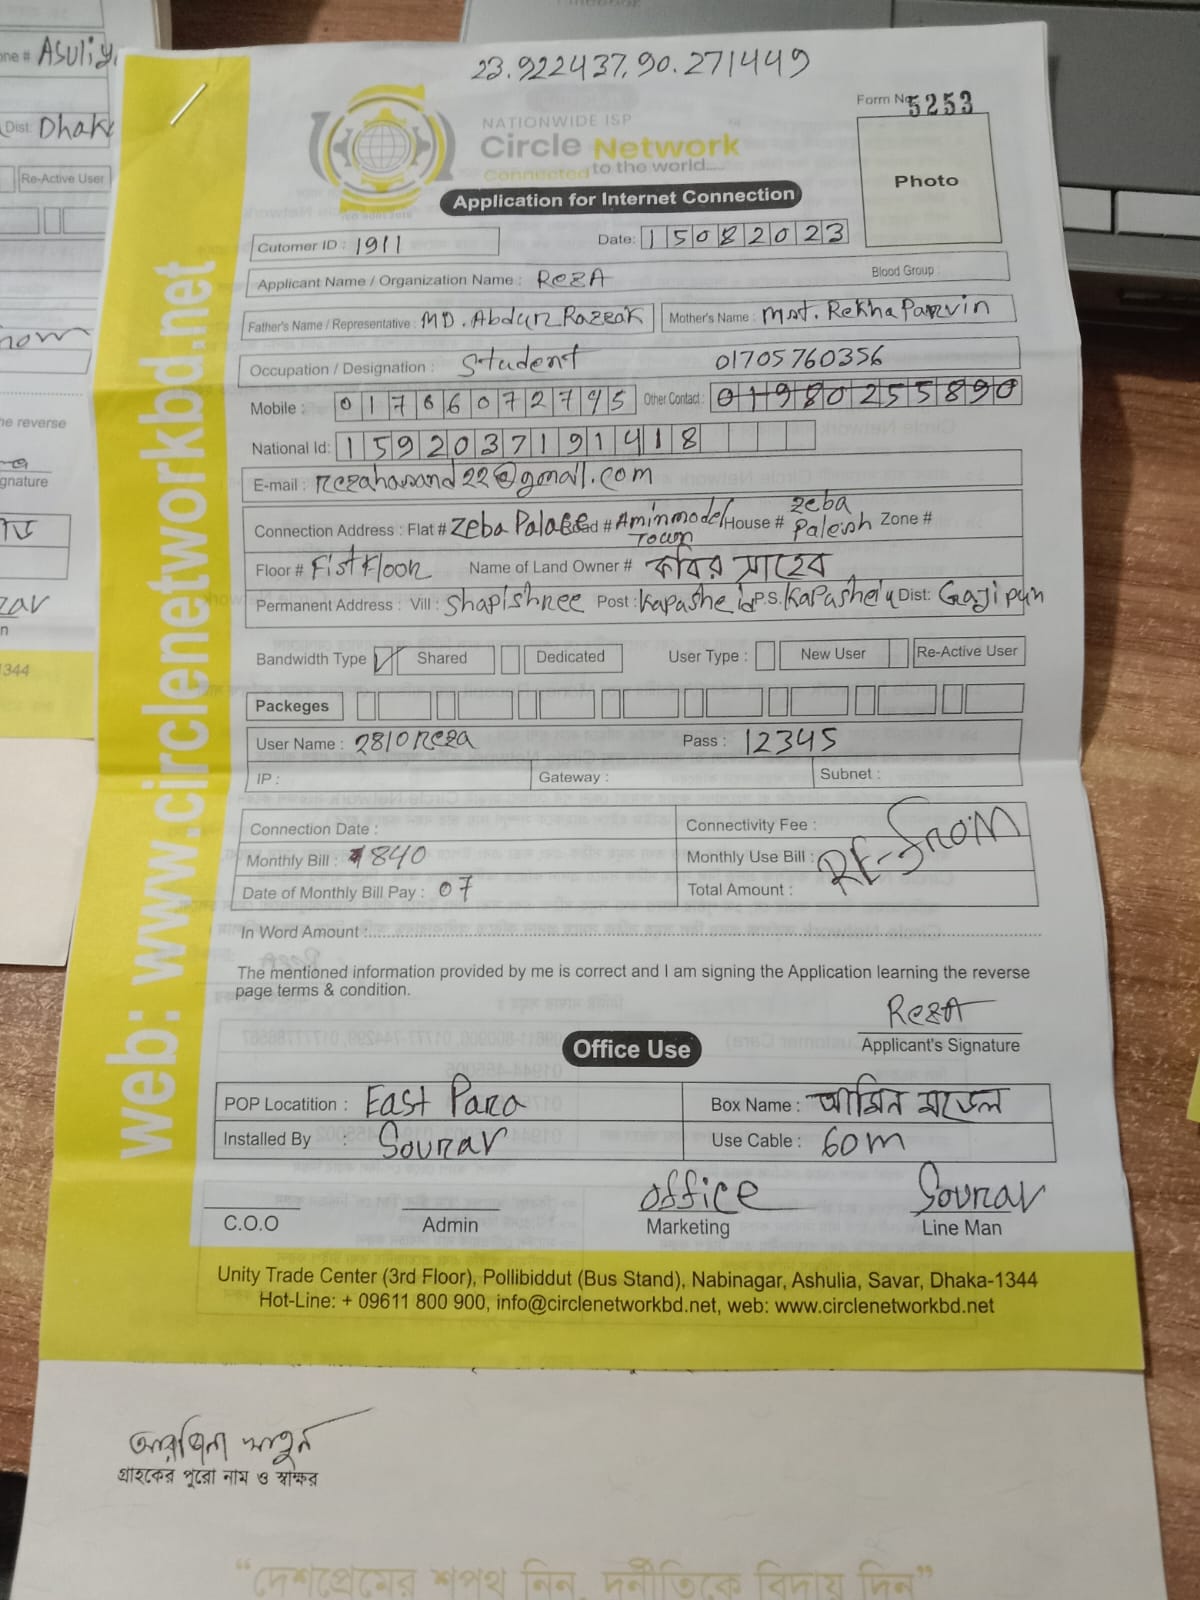 23.922437,90.271449
Form No 5253
NATIONWIDE ISP
Circle Network
Connected to the world....
Application for Internet Connection
Photo
Cutomer ID : 1911
Date: 15082023
Applicant Name / Organization Name : RezA
Blood Group :
Father's Name / Representative : MD. Abdur Razzak
Mother's Name : Mst. Rekha Parvin
Occupation / Designation : Student 01705760356
Mobile : 01766072745 Other Contact : 01980255890
National Id: 1592037191418
E-mail : rezahasand22@gmail.com
Connection Address : Flat # Zeba Palace Road # Aminmodel Town House # Zeba Palesh Zone #
Floor # Fist Floor Name of Land Owner # কবির সাহেব
Permanent Address : Vill : Shapishree Post : Kapasheia P.S. Kapasheia Dist: Gajipur
Bandwidth Type Shared Dedicated User Type : New User Re-Active User
Packeges
User Name : 2810reza Pass : 12345
IP : Gateway : Subnet :
Connection Date : Connectivity Fee :
Monthly Bill : 840 Monthly Use Bill : RE-From
Date of Monthly Bill Pay : 07 Total Amount :
In Word Amount :
The mentioned information provided by me is correct and I am signing the Application learning the reverse
page terms & condition.
RezA
Applicant's Signature
Office Use
POP Locatition : East Para Box Name : আমিন মডেল
Installed By : Sourav Use Cable : 60m
office Sourav
C.O.O Admin Marketing Line Man
Unity Trade Center (3rd Floor), Pollibiddut (Bus Stand), Nabinagar, Ashulia, Savar, Dhaka-1344
Hot-Line: + 09611 800 900, info@circlenetworkbd.net, web: www.circlenetworkbd.net
web: www.circlenetworkbd.net
খাতুন
গ্রাহকের পুরো নাম ও স্বাক্ষর
"দেশপ্রেমের শপথ নিন, দুর্নীতিকে বিদায় দিন"
Dist: Dhak
Re-Active User
he reverse
gnature
1344